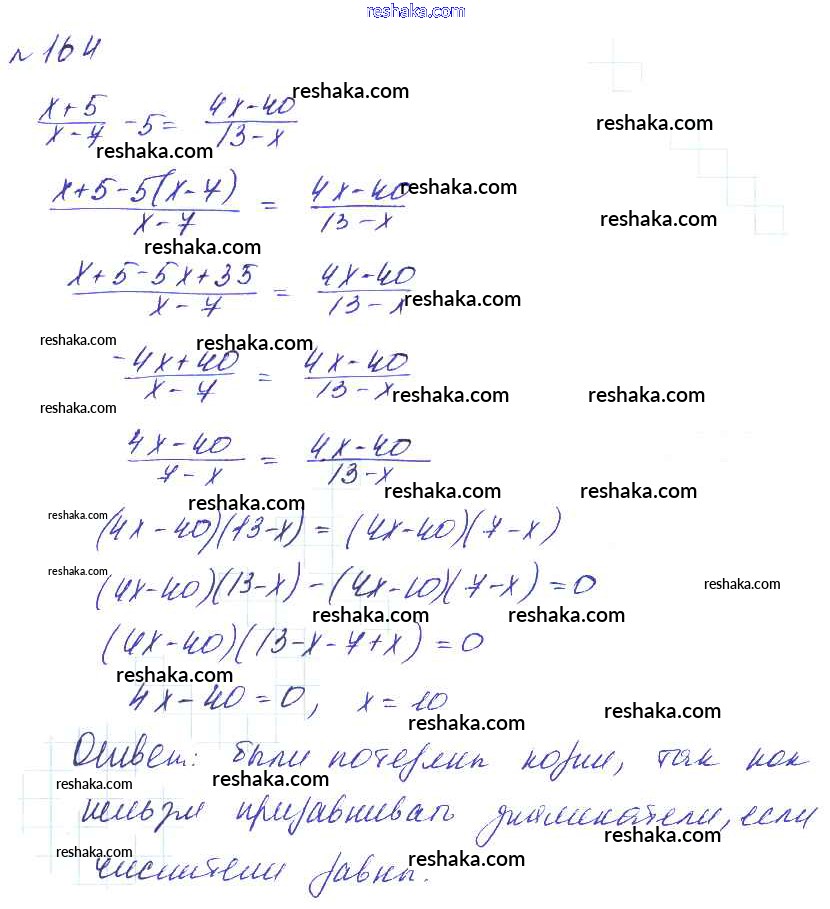 reshaka.com
№ 164
reshaka.com
(x+5)/(x-7) - 5 = (4x-40)/(13-x)
reshaka.com
reshaka.com
(x+5-5(x-7))/(x-7) = (4x-40)/(13-x)
reshaka.com
reshaka.com
reshaka.com
(x+5-5x+35)/(x-7) = (4x-40)/(13-x)
reshaka.com
reshaka.com
reshaka.com
(-4x+40)/(x-7) = (4x-40)/(13-x)
reshaka.com
reshaka.com
reshaka.com
(4x-40)/(7-x) = (4x-40)/(13-x)
reshaka.com
reshaka.com
reshaka.com
reshaka.com
(4x-40)(13-x) = (4x-40)(7-x)
reshaka.com
(4x-40)(13-x) - (4x-40)(7-x) = 0
reshaka.com
reshaka.com
reshaka.com
(4x-40)(13-x-7+x) = 0
reshaka.com
4x-40=0, x=10
reshaka.com
reshaka.com
Ответ: были потеряны корни, так как
reshaka.com
reshaka.com
нельзя приравнивать знаменатели, если
reshaka.com
reshaka.com
числители равны.
reshaka.com